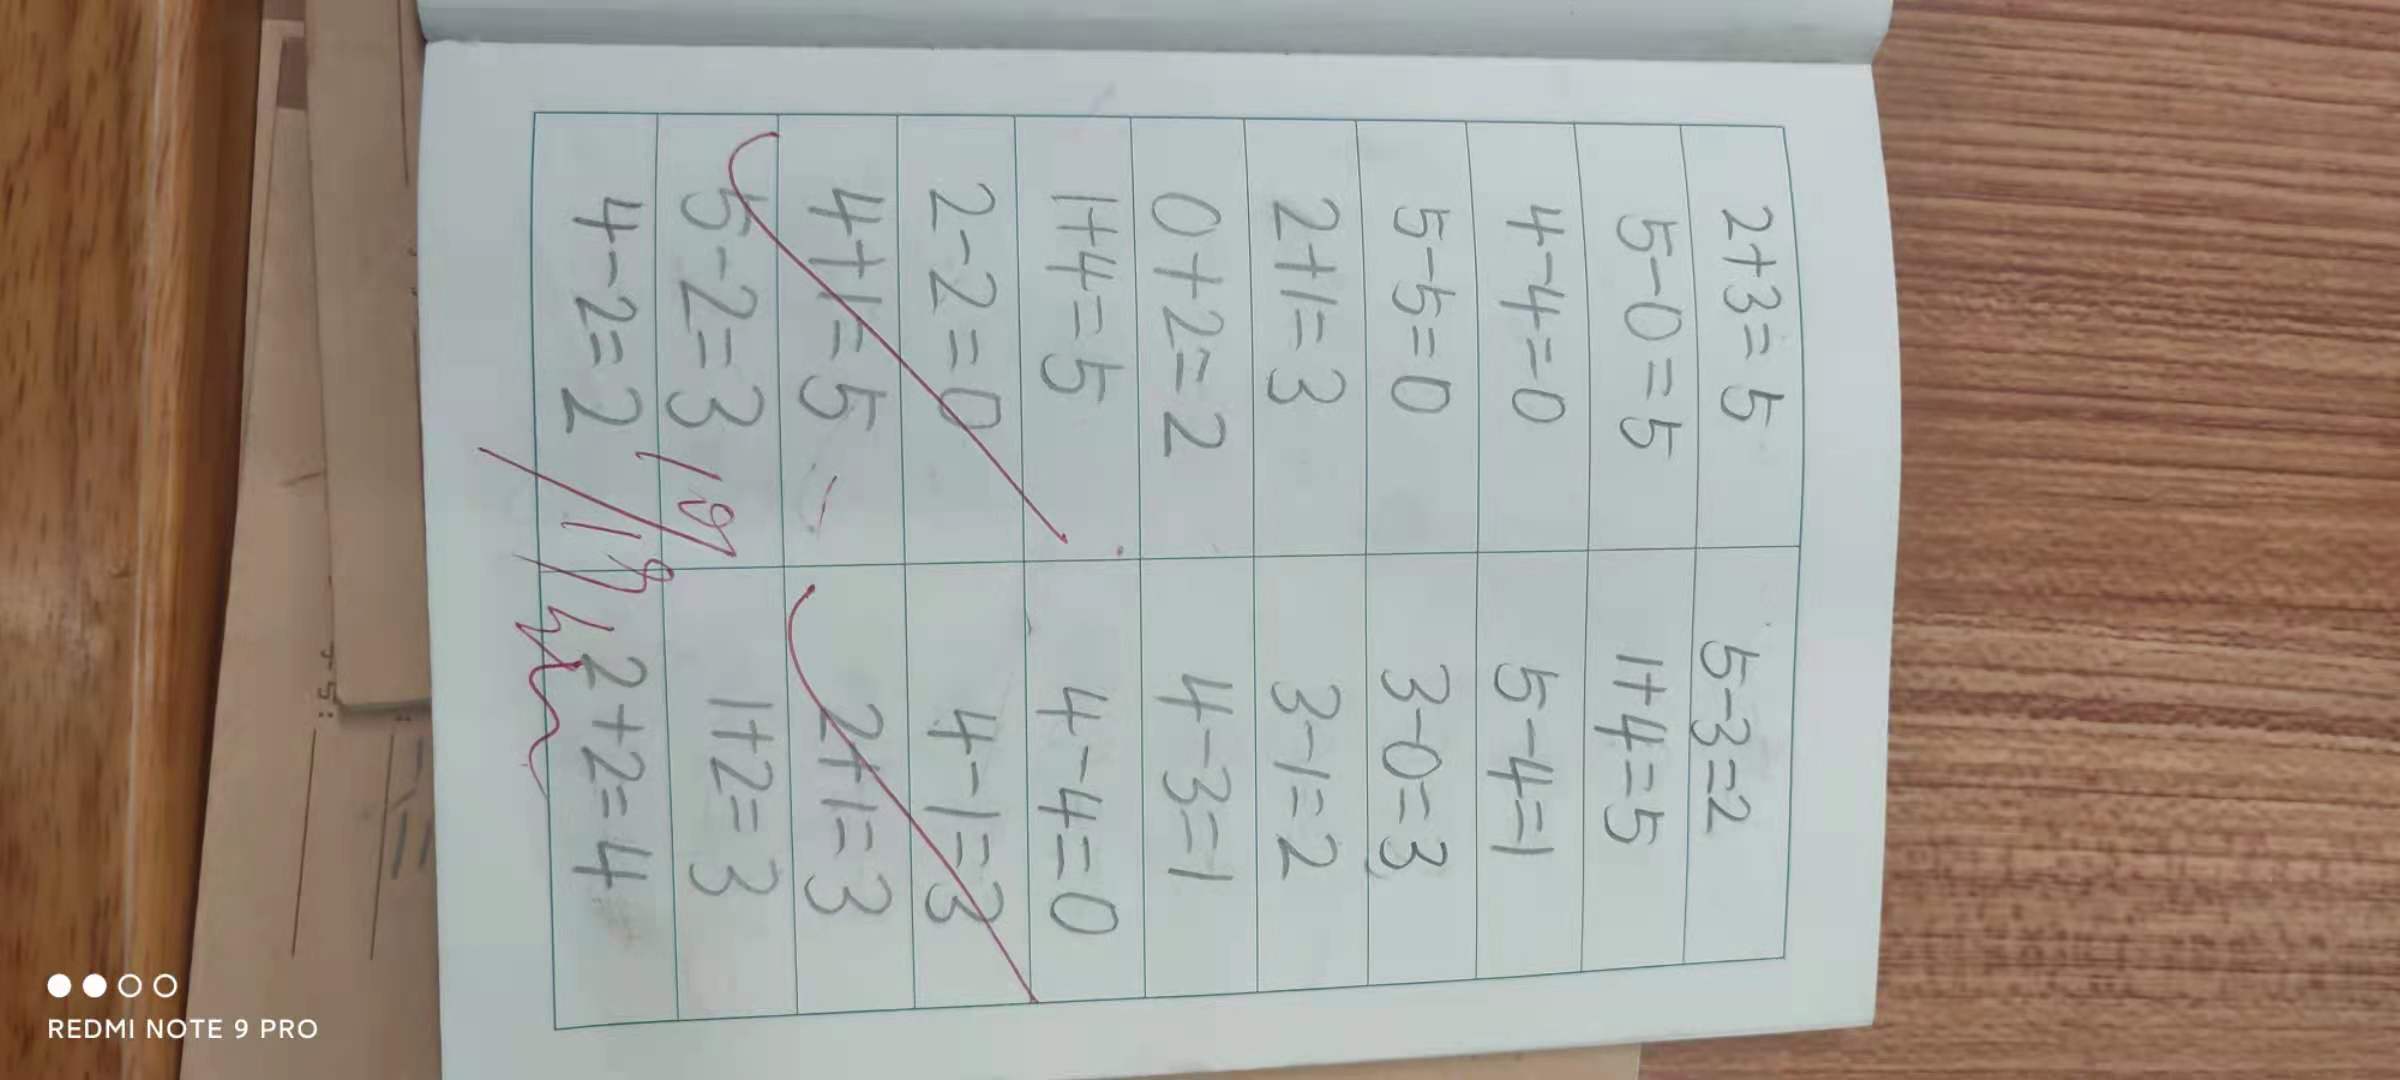 2+3=5 5-3=2
5-0=5 1+4=5
4-4=0 5-4=1
5-5=0 3-0=3
2+1=3 3-1=2
0+2=2 4-3=1
1+4=5 4-4=0
2-2=0 4-1=3
4+1=5 2+1=3
5-2=3 1+2=3
4-2=2 2+2=4
REDMI NOTE 9 PRO